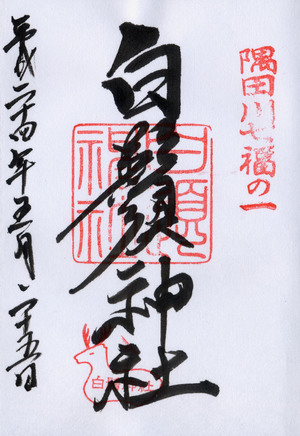 隅田川七福の一
白鬚神社
平成二十四年五月二十五日
白鬚
神社
白鬚神社